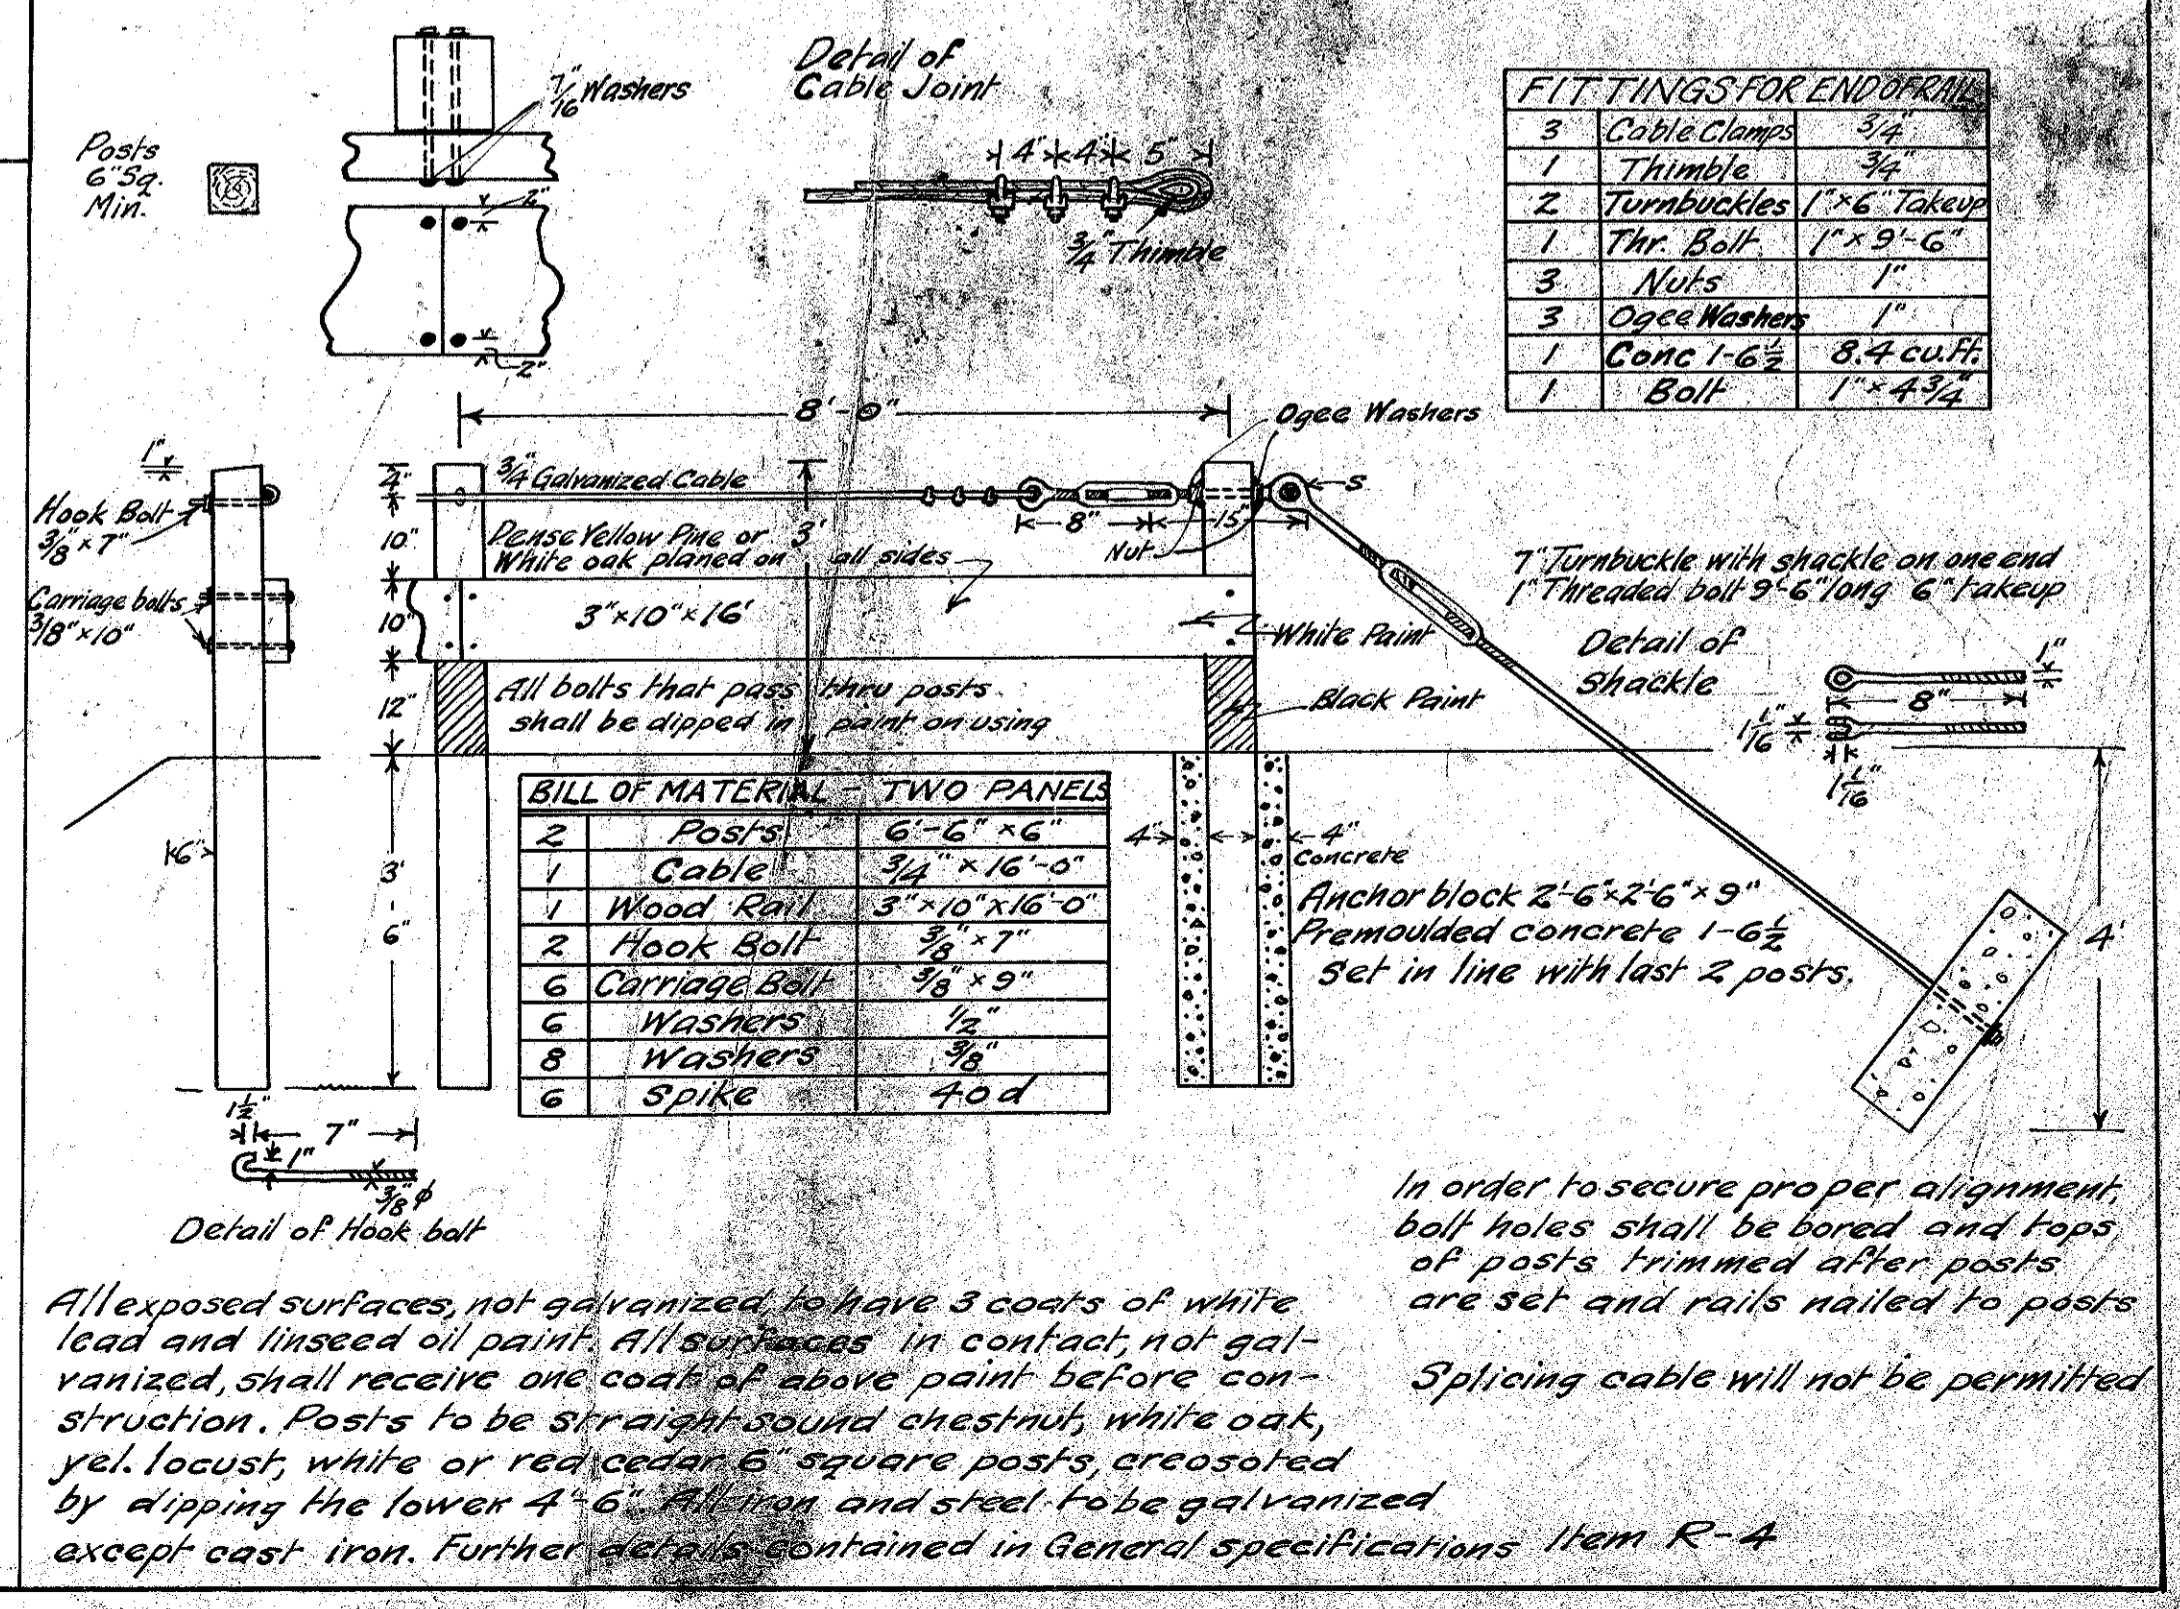 Posts
6" Sq.
Min.
7/16" Washers
2"
2"
Detail of
Cable Joint
4" 4" 5"
3/4" Thimble
FITTINGS FOR END OF RAIL
3 Cable Clamps 3/4"
1 Thimble 3/4"
2 Turnbuckles 1"×6" Takeup
1 Thr. Bolt 1"×9'-6"
3 Nuts 1"
3 Ogee Washers 1"
1 Conc 1-6½ 8.4 cu.ft.
1 Bolt 1"×4¾"
8'-0"
Ogee Washers
1"
Hook Bolt
3/8"×7"
Carriage bolts
3/8"×10"
4"
10"
10"
12"
3'-6"
6"
3/4" Galvanized Cable
3'
8"
15"
S
Nut
Dense Yellow Pine or
White oak planed on all sides
3"×10"×16'
White Paint
Black Paint
All bolts that pass thru posts
shall be dipped in paint on using
7" Turnbuckle with shackle on one end
1" Threaded bolt 9'-6" long 6" takeup
Detail of
Shackle
1"
8"
1 1/16"
1 1/16"
BILL OF MATERIAL - TWO PANELS
2 Posts 6'-6"×6"
1 Cable 3/4"×16'-0"
1 Wood Rail 3"×10"×16'-0"
2 Hook Bolt 3/8"×7"
6 Carriage Bolt 3/8"×9"
6 Washers 1/2"
8 Washers 3/8"
6 Spike 40d
4" 4"
Concrete
Anchor block 2'-6"×2'-6"×9"
Premoulded concrete 1-6½
Set in line with last 2 posts.
4'
1½"
7"
1"
3/8"ϕ
Detail of Hook bolt
In order to secure proper alignment,
bolt holes shall be bored and tops
of posts trimmed after posts
are set and rails nailed to posts
Splicing cable will not be permitted
All exposed surfaces, not galvanized, to have 3 coats of white
lead and linseed oil paint. All surfaces in contact, not gal-
vanized, shall receive one coat of above paint before con-
struction. Posts to be straight sound chestnut, white oak,
yel. locust, white or red cedar 6" square posts, creosoted
by dipping the lower 4'-6". All iron and steel to be galvanized
except cast iron. Further details contained in General specifications Item R-4